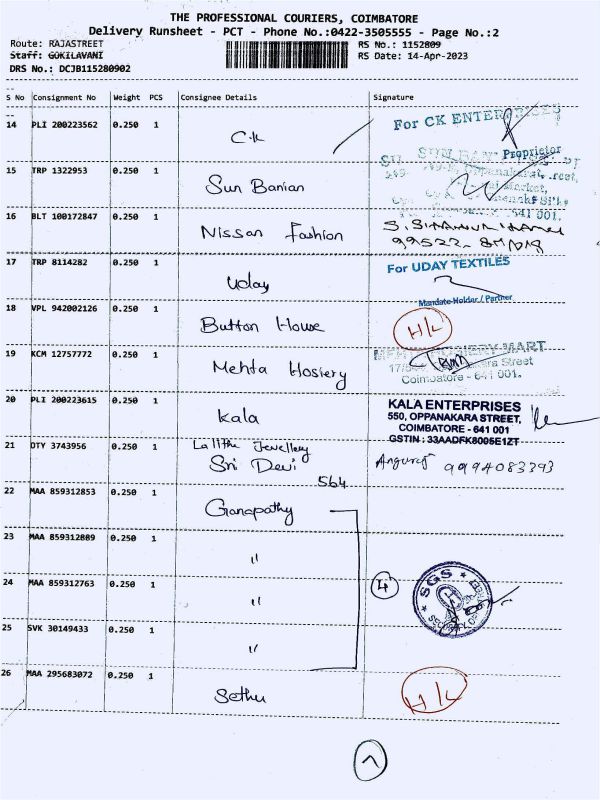 THE PROFESSIONAL COURIERS, COIMBATORE
Delivery Runsheet - PCT - Phone No.:0422-3505555 - Page No.:2
Route: RAJASTREET
RS No.: 1152809
Staff: GOKILAVANI
RS Date: 14-Apr-2023
DRS No.: DCJB115280902
S No Consignment No Weight PCS Consignee Details Signature
14 PLI 200223562 0.250 1 C.K For CK ENTERPRISES
Proprietor
15 TRP 1322953 0.250 1 Sun Banian
641 001.
16 BLT 100172847 0.250 1 Nissan Fashion
17 TRP 8114282 0.250 1 Uday For UDAY TEXTILES
Mandate Holder / Partner
18 VPL 942002126 0.250 1 Button House H/L
19 KCM 12757772 0.250 1 Mehta Hosiery
Street
Coimbatore - 641 001.
20 PLI 200223615 0.250 1 Kala KALA ENTERPRISES
550, OPPANAKARA STREET,
COIMBATORE - 641 001
GSTIN : 33AADFK8005E1ZT
21 DTY 3743956 0.250 1 Lalitha Jewellery
Sri Devi 9994083393
564
22 MAA 859312853 0.250 1 Ganapathy
23 MAA 859312889 0.250 1 "
24 MAA 859312763 0.250 1 " 4 SGS
25 SVK 30149433 0.250 1 "
26 MAA 295683072 0.250 1 Sethu H/L